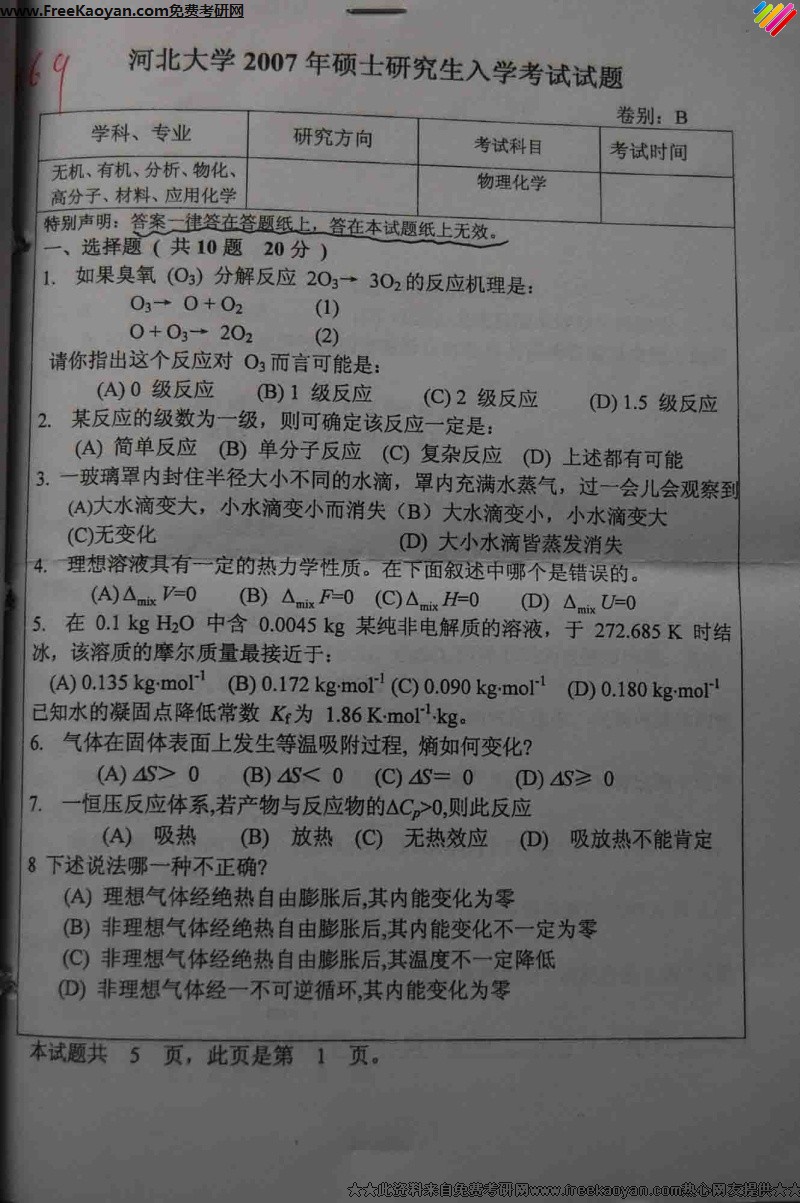 www.FreeKaoyan.com免费考研网
69
河北大学 2007 年硕士研究生入学考试试题
卷别：B
学科、专业 研究方向 考试科目 考试时间
无机、有机、分析、物化、
高分子、材料、应用化学 物理化学
特别声明：答案一律答在答题纸上，答在本试题纸上无效。
一、选择题 ( 共 10 题 20 分 )
1. 如果臭氧 (O₃) 分解反应 2O₃→ 3O₂ 的反应机理是：
O₃→ O + O₂ (1)
O + O₃→ 2O₂ (2)
请你指出这个反应对 O₃ 而言可能是：
(A) 0 级反应 (B) 1 级反应 (C) 2 级反应 (D) 1.5 级反应
2. 某反应的级数为一级，则可确定该反应一定是：
(A) 简单反应 (B) 单分子反应 (C) 复杂反应 (D) 上述都有可能
3. 一玻璃罩内封住半径大小不同的水滴，罩内充满水蒸气，过一会儿会观察到
(A)大水滴变大，小水滴变小而消失（B）大水滴变小，小水滴变大
(C)无变化 (D) 大小水滴皆蒸发消失
4. 理想溶液具有一定的热力学性质。在下面叙述中哪个是错误的。
(A) Δmix V=0 (B) Δmix F=0 (C) Δmix H=0 (D) Δmix U=0
5. 在 0.1 kg H₂O 中含 0.0045 kg 某纯非电解质的溶液，于 272.685 K 时结
冰，该溶质的摩尔质量最接近于：
(A) 0.135 kg·mol⁻¹ (B) 0.172 kg·mol⁻¹ (C) 0.090 kg·mol⁻¹ (D) 0.180 kg·mol⁻¹
已知水的凝固点降低常数 Kf 为 1.86 K·mol⁻¹·kg。
6. 气体在固体表面上发生等温吸附过程, 熵如何变化?
(A) ΔS＞ 0 (B) ΔS＜ 0 (C) ΔS＝ 0 (D) ΔS≥ 0
7. 一恒压反应体系,若产物与反应物的ΔCp>0,则此反应
(A) 吸热 (B) 放热 (C) 无热效应 (D) 吸放热不能肯定
8 下述说法哪一种不正确?
(A) 理想气体经绝热自由膨胀后,其内能变化为零
(B) 非理想气体经绝热自由膨胀后,其内能变化不一定为零
(C) 非理想气体经绝热自由膨胀后,其温度不一定降低
(D) 非理想气体经一不可逆循环,其内能变化为零
本试题共 5 页，此页是第 1 页。
☆☆此资料来自免费考研网www.freekaoyan.com热心网友提供☆☆